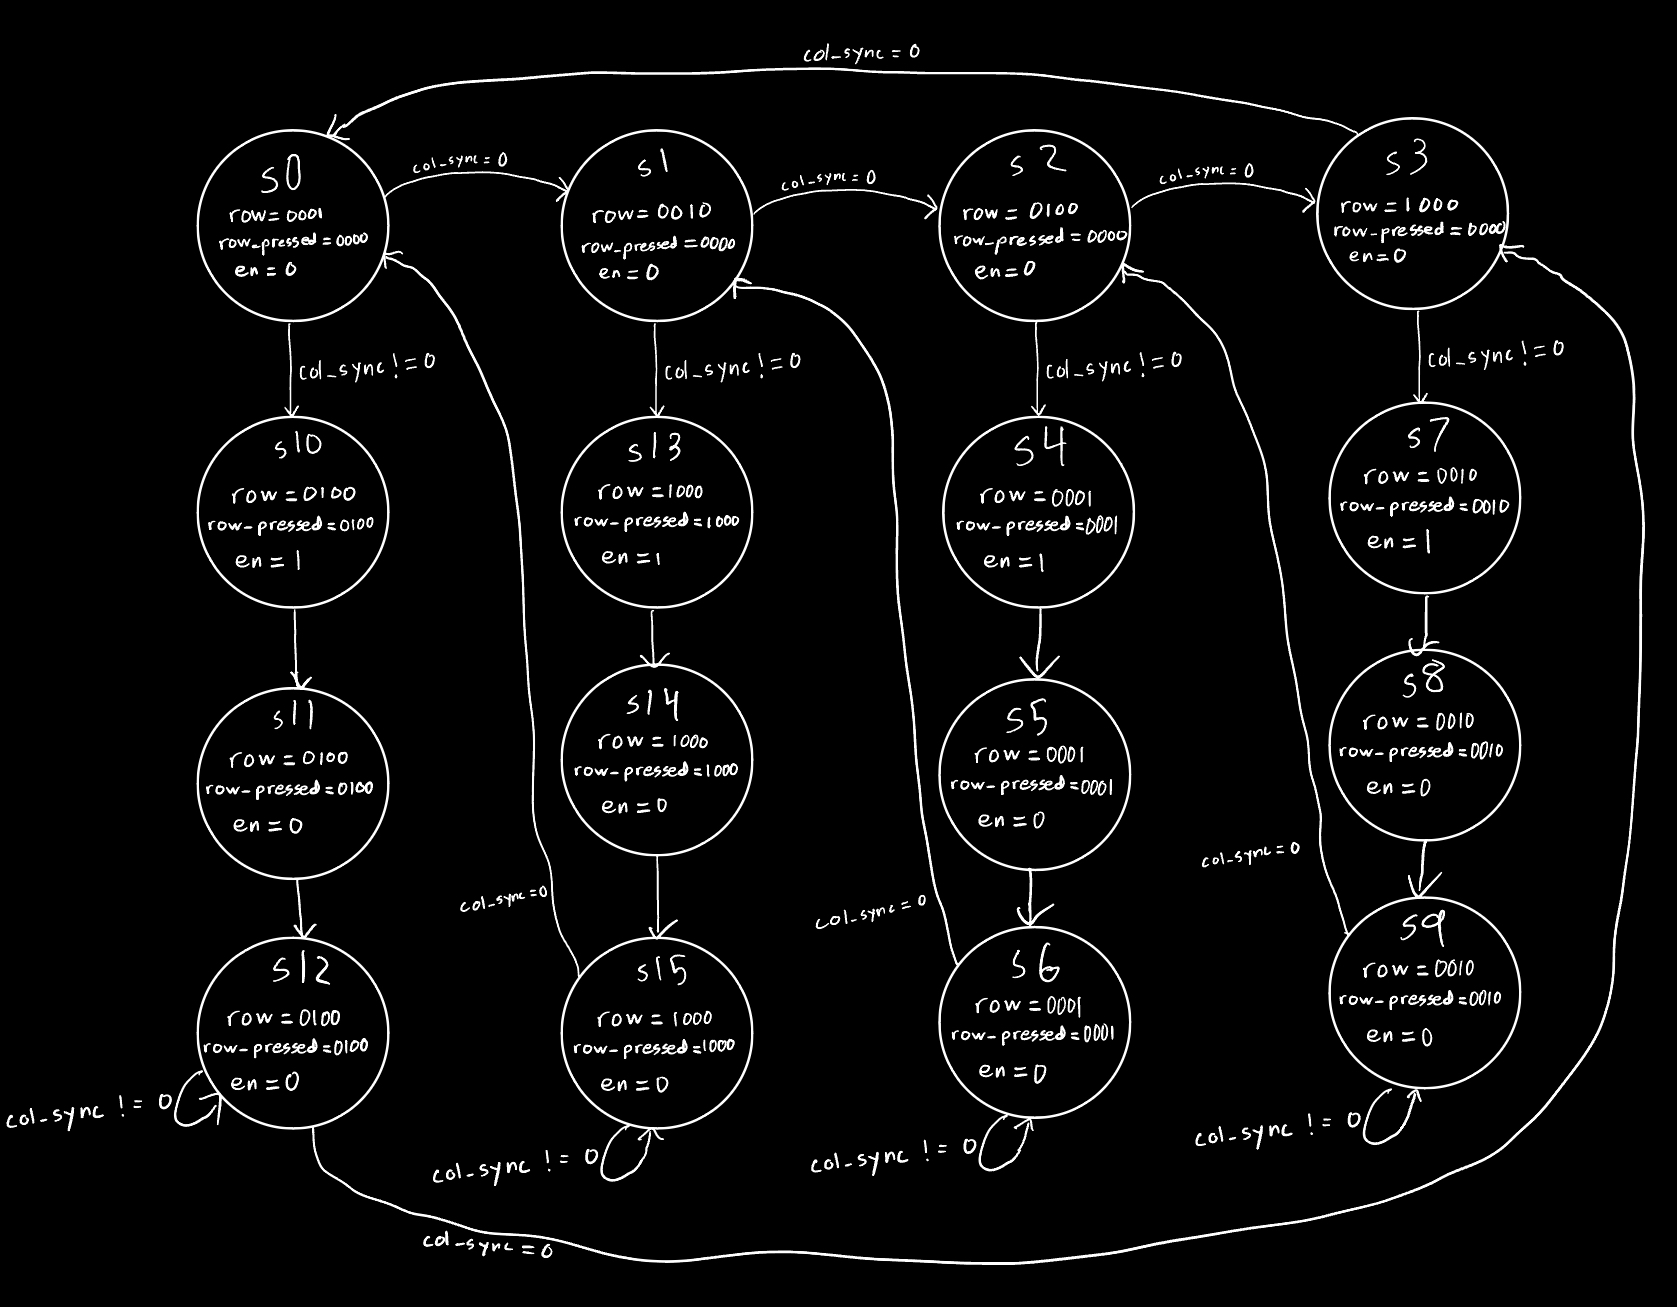 col_sync = 0
s0
row=0001
row_pressed=0000
en=0
col_sync=0
s1
row=0010
row_pressed=0000
en=0
col_sync=0
s2
row=0100
row_pressed=0000
en=0
col_sync=0
s3
row=1000
row_pressed=0000
en=0
col_sync!=0
col_sync!=0
col_sync!=0
col_sync!=0
s10
row=0100
row-pressed=0100
en=1
s13
row=1000
row-pressed=1000
en=1
s4
row=0001
row-pressed=0001
en=1
s7
row=0010
row-pressed=0010
en=1
s11
row=0100
row-pressed=0100
en=0
s14
row=1000
row-pressed=1000
en=0
s5
row=0001
row-pressed=0001
en=0
s8
row=0010
row-pressed=0010
en=0
col_sync=0
col_sync=0
col_sync=0
s12
row=0100
row-pressed=0100
en=0
s15
row=1000
row-pressed=1000
en=0
s6
row=0001
row-pressed=0001
en=0
s9
row=0010
row-pressed=0010
en=0
col_sync != 0
col_sync != 0
col_sync != 0
col_sync != 0
col_sync=0